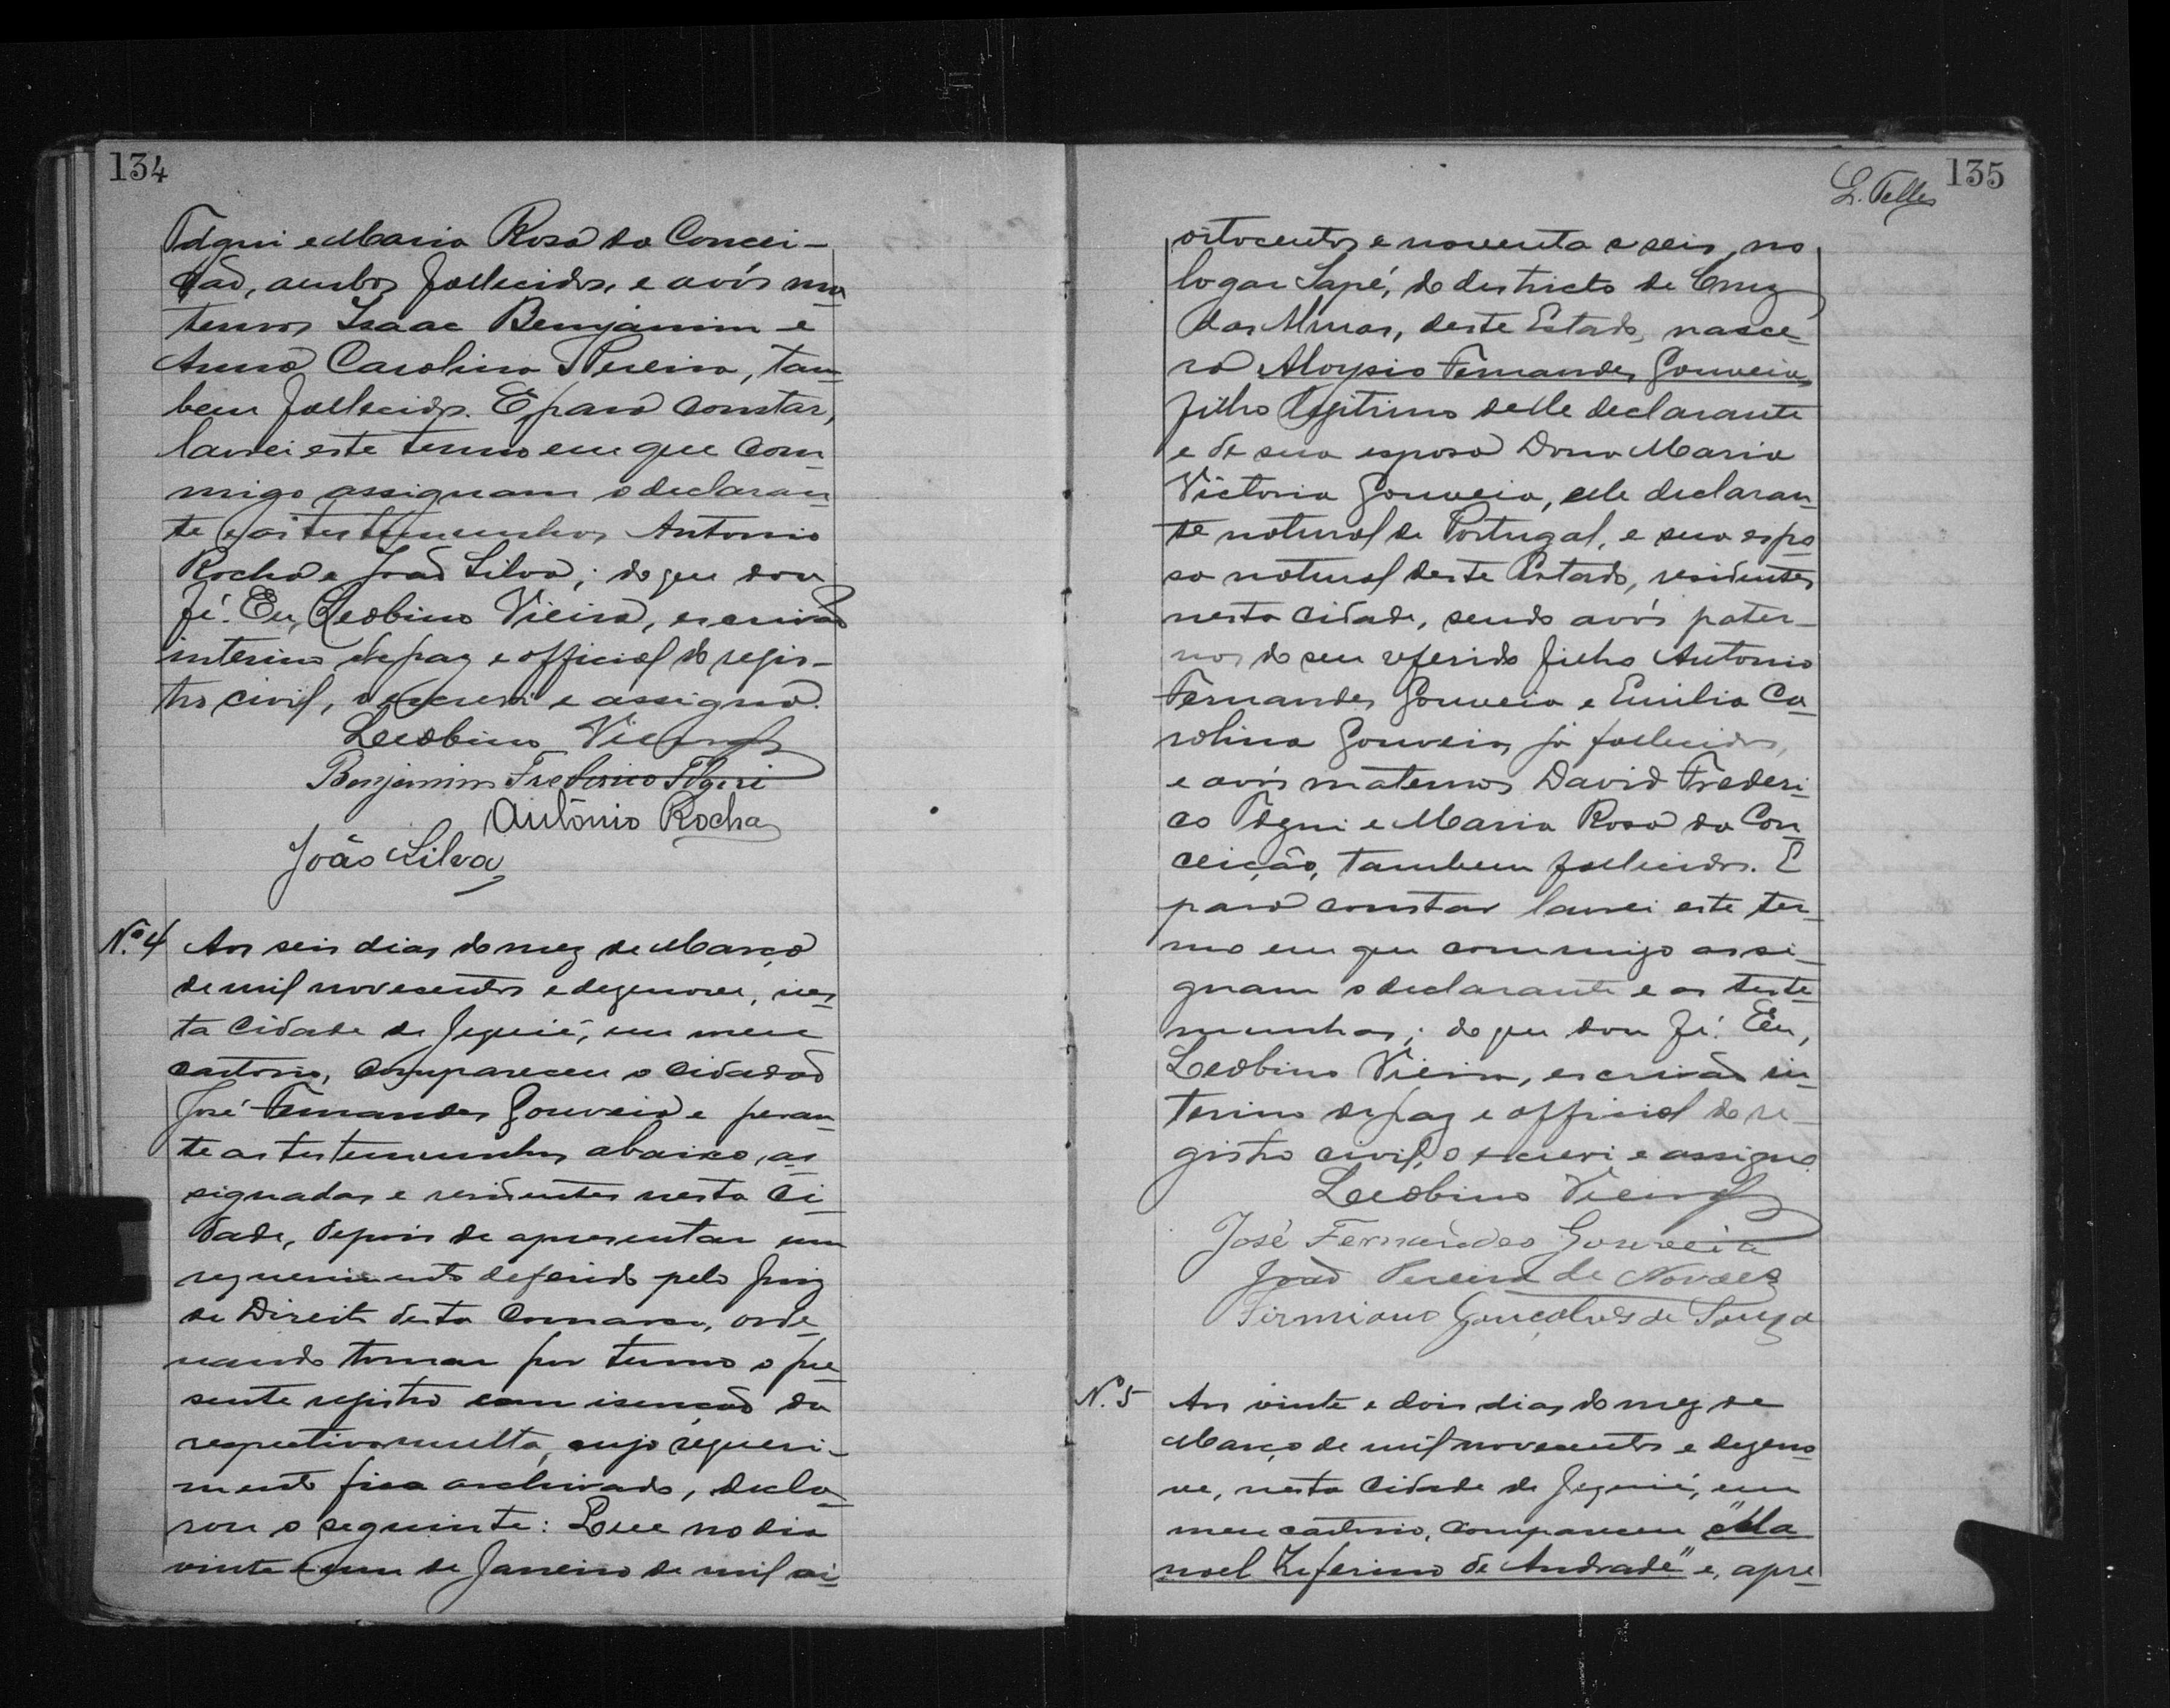 134
Tdgui e Maria Rosa da Concei-
ção, ambos fallecidos, e avós ma-
ternos Isaac Benjamim e
Anna Carolina Pereira, tam-
bem fallecidos. E para constar,
lavrei este termo em que com-
migo assignam o declaran-
te e as testemunhas Antonio
Rocha e João Silva; do que dou
fé. Eu, Leobino Vieira, escrivão
interino de paz e official do regis-
tro civil, o escrevi e assigno.
Leobino Vieira
Benjamim Frederico
Antônio Rocha
João Silva
N.º 4 Aos seis dias do mez de Março
de mil novecentos e dezenove, nes-
ta cidade de Jequié, em meu
cartorio, compareceu o cidadão
José Fernandes Gouveia e peran-
te as testemunhas abaixo, as-
signadas e residentes nesta ci-
dade, depois de apresentar um
requerimento deferido pelo Juiz
de Direito desta Comarca, orde-
nando tomar por termo o pre-
sente registro com isenção da
respectiva multa, cujo requeri-
mento fica archivado, decla-
rou o seguinte: Que no dia
vinte e um de Janeiro de mil oi-
135
L. Telles
oitocentos e noventa e seis, no
logar Sapé, do districto de Cruz
das Almas, deste Estado, nasce-
ra Aloysio Fernandes Gouveia,
filho legitimo delle declarante
e de sua esposa Dona Maria
Victoria Gouveia, elle declaran-
te natural de Portugal, e sua espo-
sa natural deste Estado, residentes
nesta cidade, sendo avós pater-
nos do seu referido filho Antonio
Fernandes Gouveia e Emilia Ca-
rolina Gouveia, já fallecidos,
e avós maternos David Frederi-
co Tdgui e Maria Rosa da Con-
ceição, tambem fallecidos. E
para constar lavrei este ter-
mo em que commigo assi-
gnam o declarante e as teste-
munhas; do que dou fé. Eu,
Leobino Vieira, escrivão in-
terino de paz e official do re-
gistro civil, o escrevi e assigno.
Leobino Vieira
José Fernandes Gouveia
João Pereira de Novaes
Firmiano Gonçalves de Souza
N.º 5 Aos vinte e dois dias do mez de
Março de mil novecentos e dezeno-
ve, nesta cidade de Jequié, em
meu cartorio, compareceu "Ma-
noel Zeferino de Andrade" e, apre-